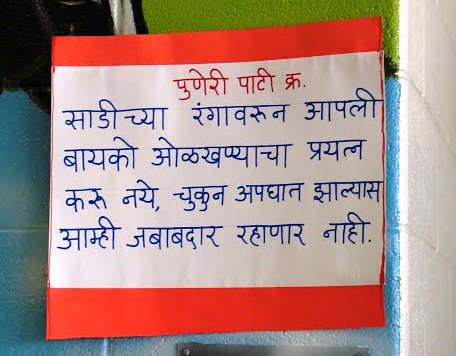 पुणेरी पाटी क्र.
साडीच्या रंगावरून आपली
बायको ओळखण्याचा प्रयत्न
करू नये, चुकुन अपघात झाल्यास
आम्ही जबाबदार रहाणार नाही.